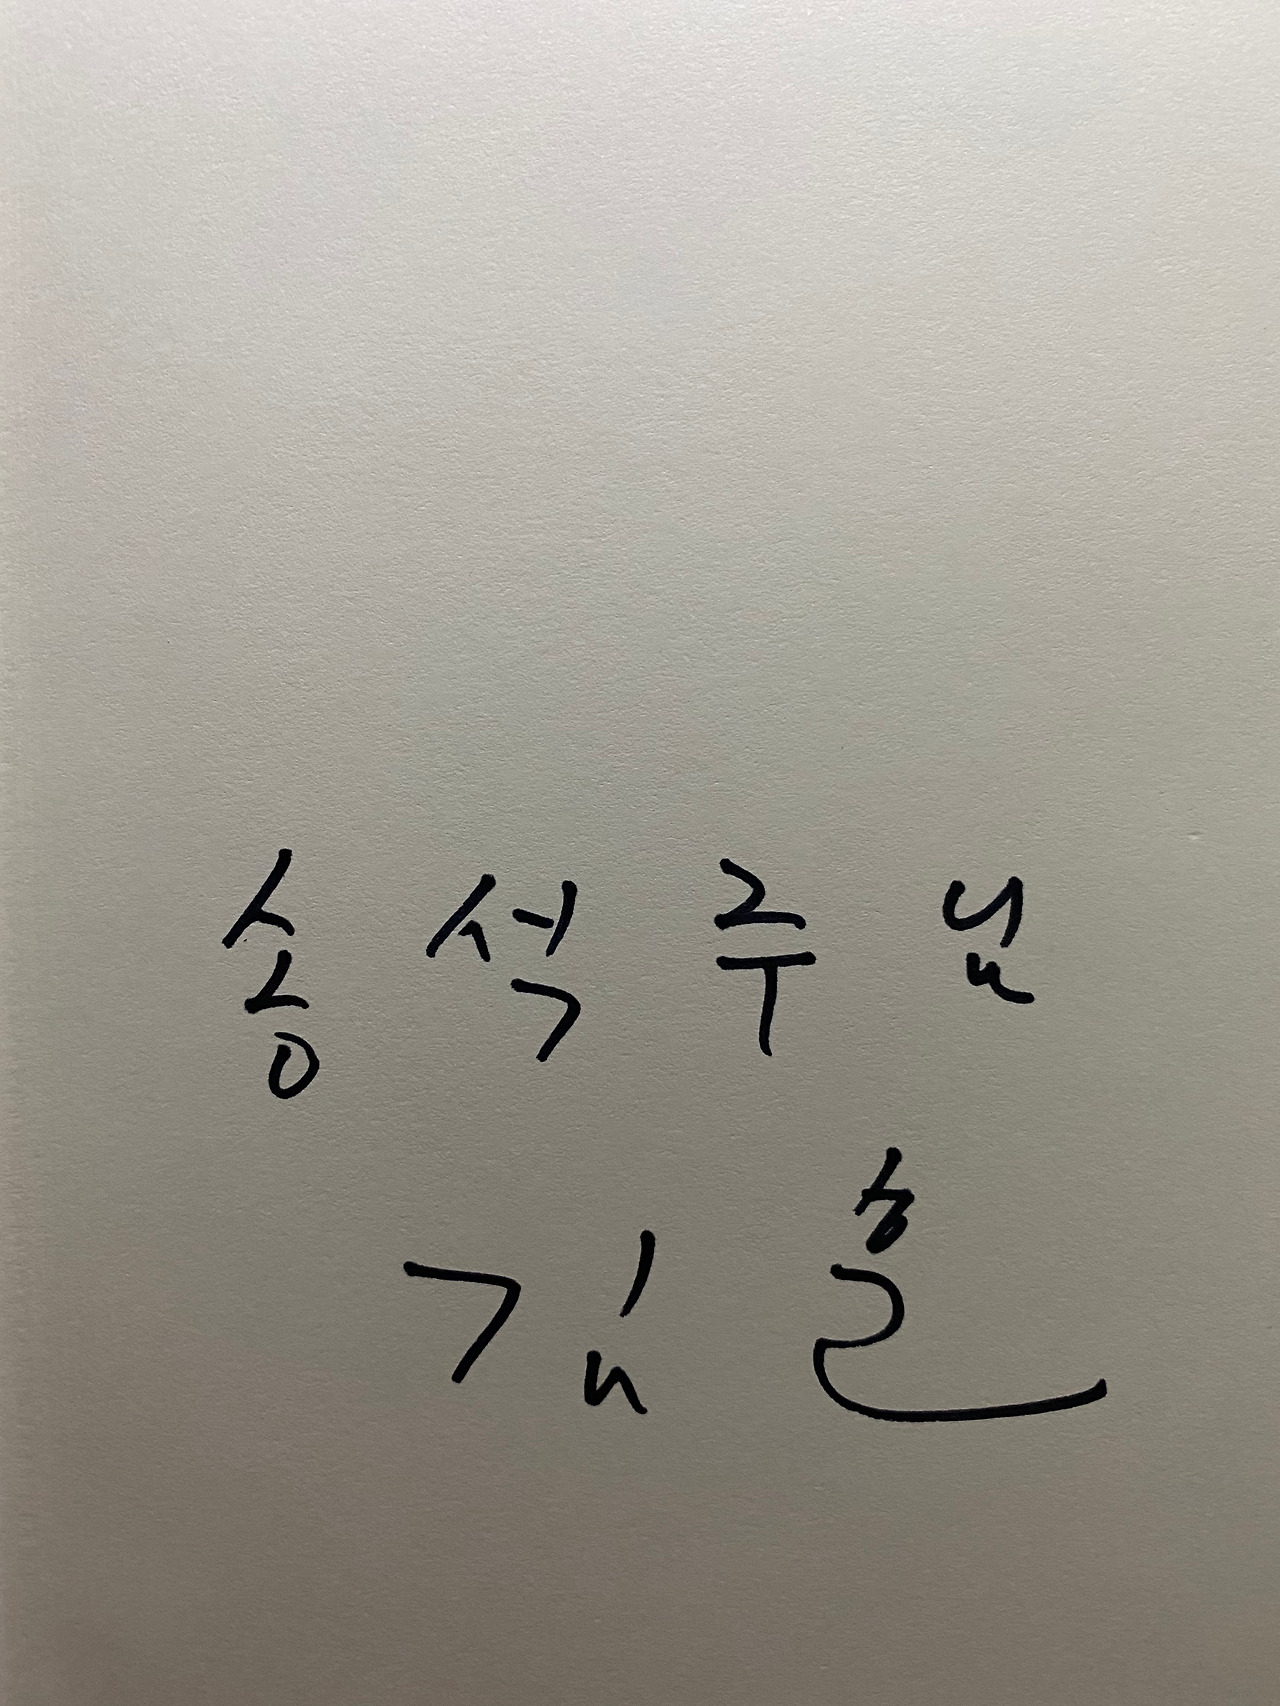 송석주님
김훈